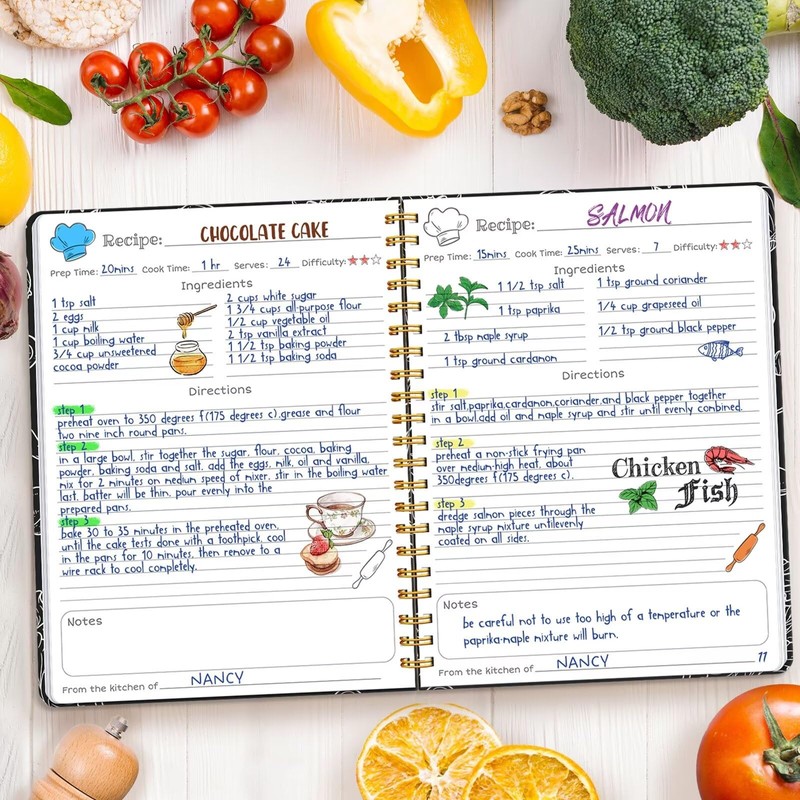 Recipe: CHOCOLATE CAKE
Prep Time: 20mins Cook Time: 1 hr Serves: 24 Difficulty:
Ingredients
1 tsp salt
2 eggs
1 cup milk
1 cup boiling water
3/4 cup unsweetened
cocoa powder
2 cups white sugar
1 3/4 cups all-purpose flour
1/2 cup vegetable oil
2 tsp vanilla extract
1 1/2 tsp baking powder
1 1/2 tsp baking soda
Directions
step 1
preheat oven to 350 degrees f(175 degrees c).grease and flour
two nine inch round pans.
step 2
in a large bowl, stir together the sugar, flour, cocoa, baking
powder, baking soda and salt. add the eggs, milk, oil and vanilla,
mix for 2 minutes on medium speed of mixer. stir in the boiling water
last. batter will be thin. pour evenly into the
prepared pans.
step 3
bake 30 to 35 minutes in the preheated oven,
until the cake tests done with a toothpick. cool
in the pans for 10 minutes, then remove to a
wire rack to cool completely.
Notes
From the kitchen of NANCY
Recipe: SALMON
Prep Time: 15mins Cook Time: 25mins Serves: 7 Difficulty:
Ingredients
1 1/2 tsp salt
1 tsp paprika
2 tbsp maple syrup
1 tsp ground cardanon
1 tsp ground coriander
1/4 cup grapeseed oil
1/2 tsp ground black pepper
Directions
step 1
stir salt,paprika,cardanon,coriander,and black pepper together
in a bowl.add oil and maple syrup and stir until evenly combined.
step 2
preheat a non-stick frying pan
over medium-high heat, about
350degrees f(175 degrees c).
step 3
dredge salmon pieces through the
maple syrup mixture untilevenly
coated on all sides.
Chicken
Fish
Notes
be careful not to use too high of a temperature or the
paprika-maple mixture will burn.
From the kitchen of NANCY
11